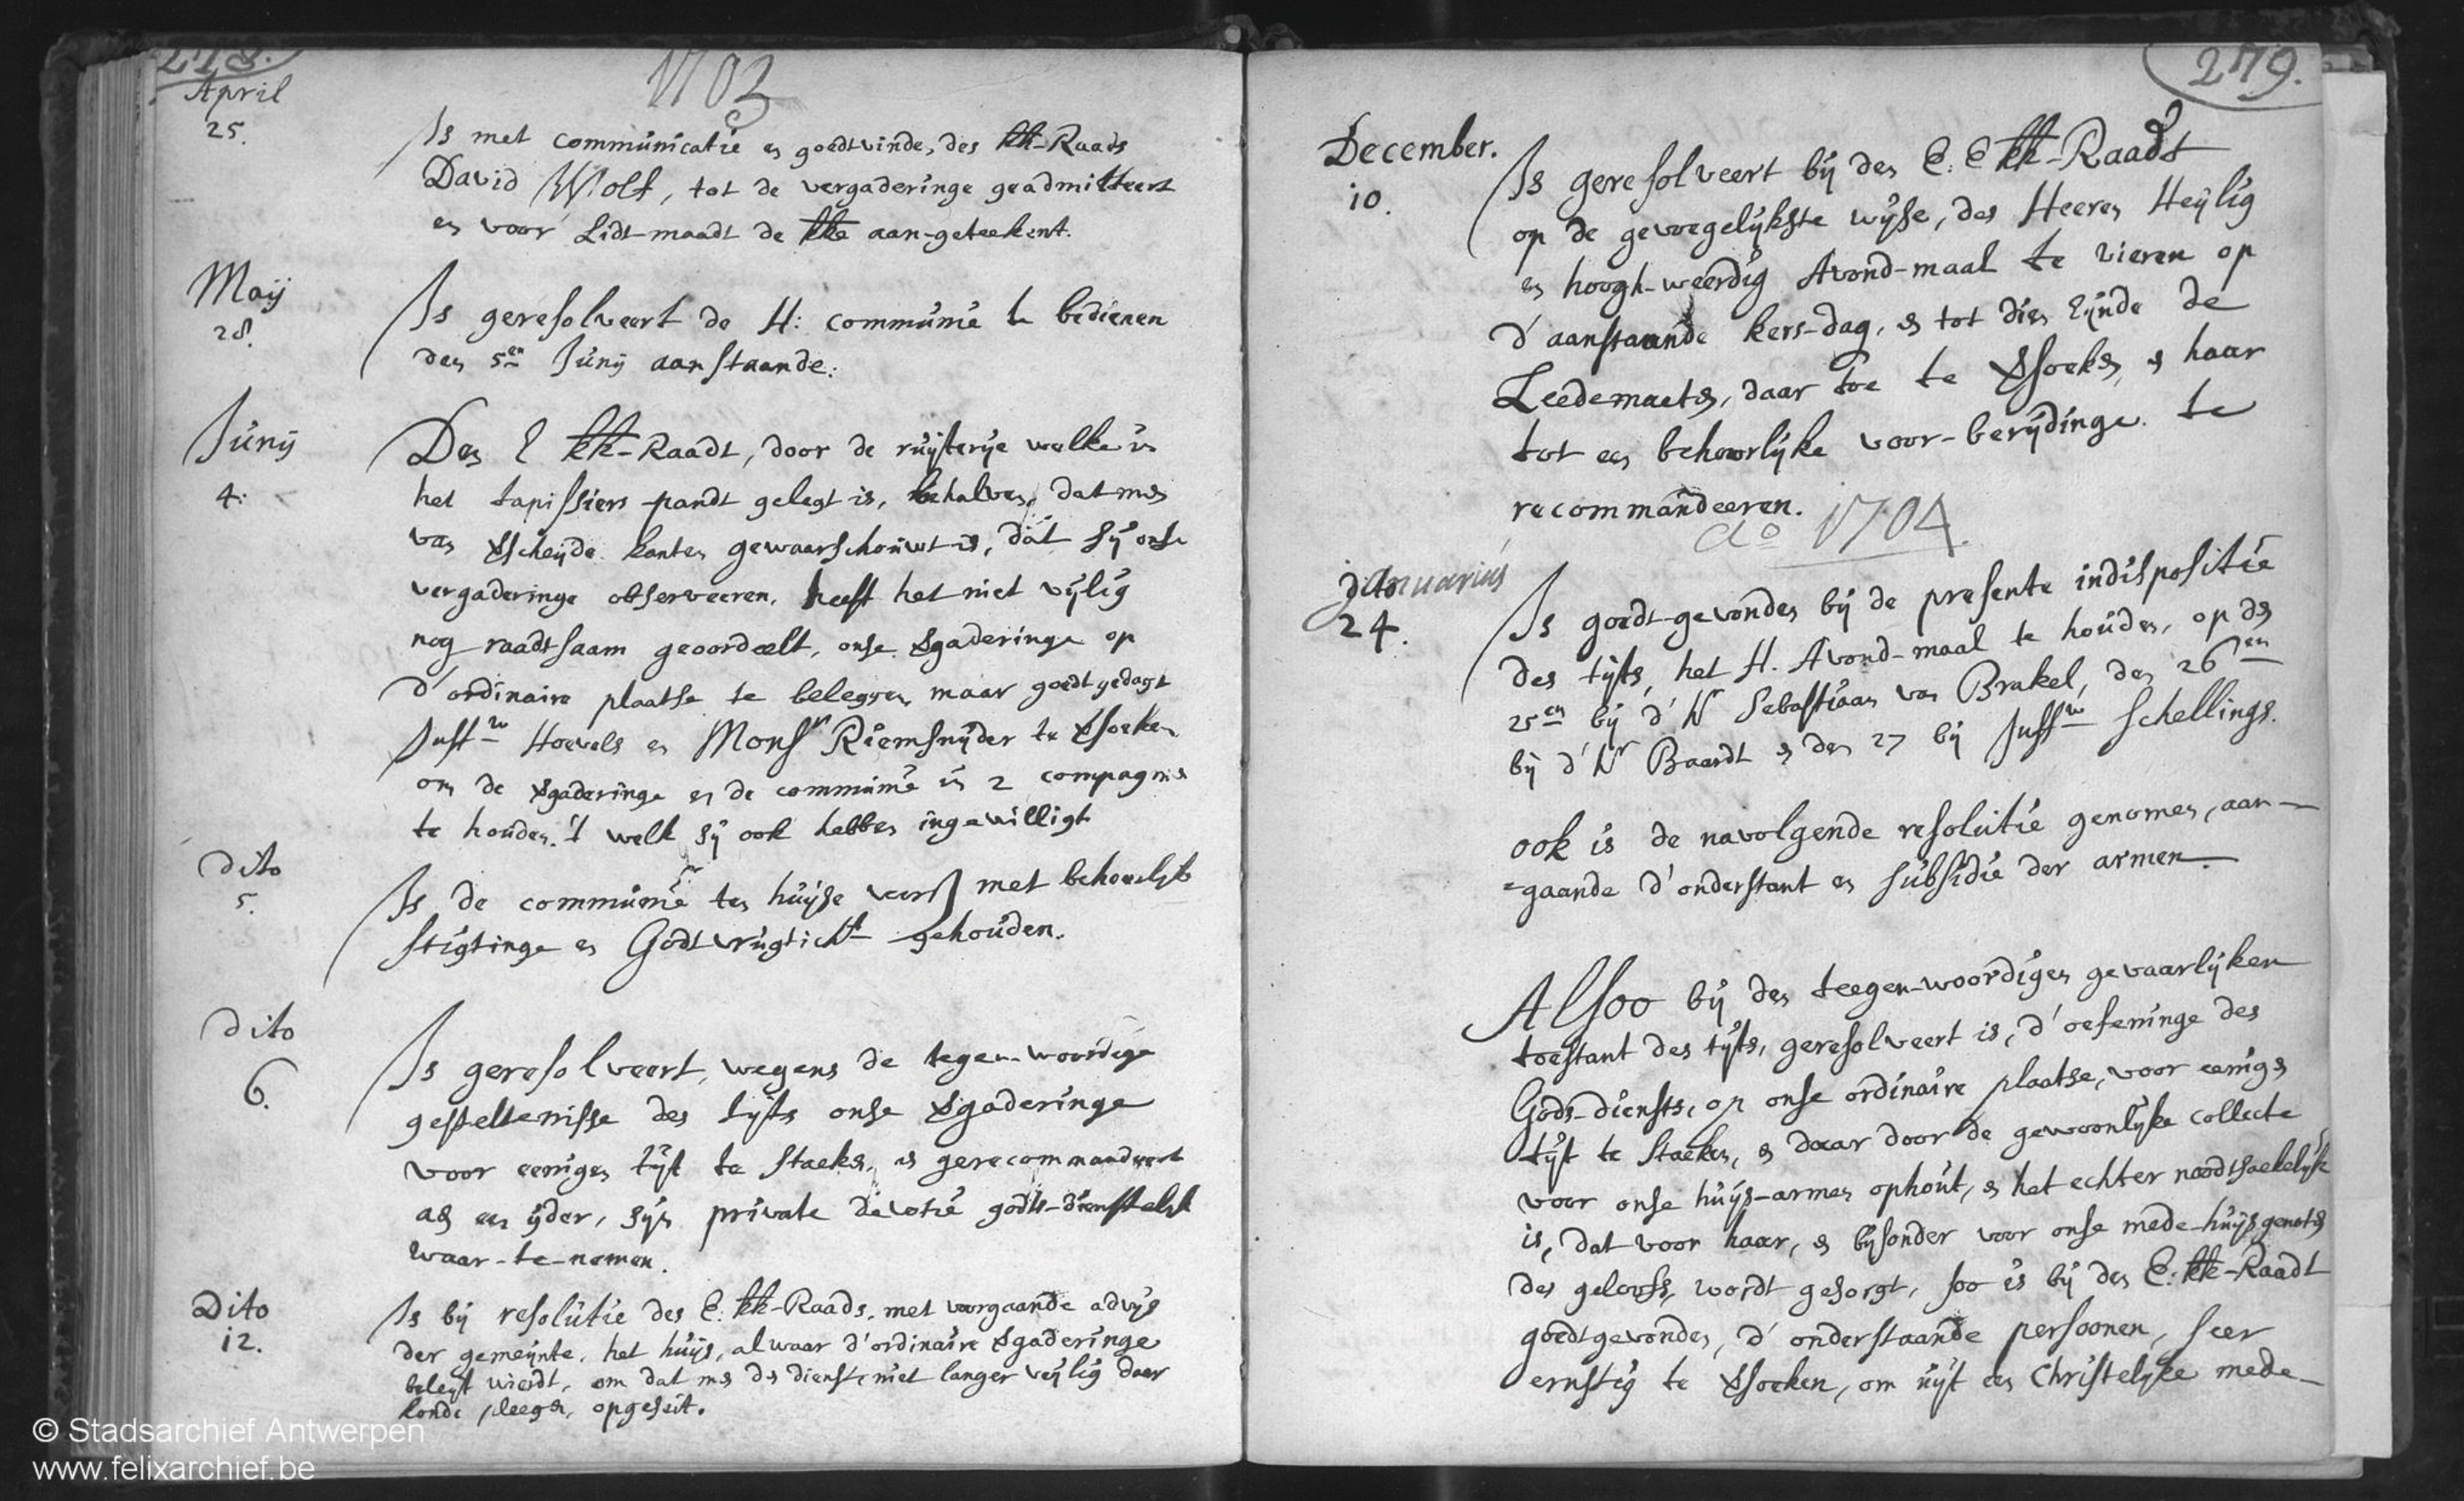 278.
1703
April
25.
Is met communicatie en goedtvinden, des kk-Raads
David Wolf, tot de vergaderinge geadmitteert
en voor Lidt-maadt de kke aan-geteekent.
Maij
28.
Is geresolveert de H: communie te bedienen
den 5en Junij aanstaande.
Junij
4.
Den E kk-Raadt, door de ruijterije welke in
het tapissiers-pandt gelegt is, behalven, dat men
van vscheijde kanten gewaarschouwt is, dat sij onse
vergaderinge observeeren, heeft het niet vijlig
nog raadtsaam geoordeelt, onse vgaderinge op
d'ordinaire plaatse te beleggen, maar goedt gedagt
Juffw Hoevels en Monsr Riemsnijder te vsoeken
om de vgaderinge en de communie in 2 compagnis
te houden. 't welk sij ook hebben ingewilligt
dito
5.
Is de communie ten huijse voors met behoorlijke
stigtinge en Godtvrugticht gehouden.
dito
6.
Is geresolveert, wegens de tegen-woordige
gesteltenisse des tijts onse vgaderinge
voor eenigen tijt te staeken, en gerecommandeert
aen een ijder, sijn private devotie godts-dienstelijk
waar-te-nemen.
Dito
12.
Is bij resolutie des E. kk-Raads, met voorgaande advijs
der gemeijnte, het huijs, alwaar d'ordinaire vgaderinge
beleijt wierdt, om dat men den dienst niet langer veijlig daer
konde pleegen, opgeseit.
279.
December.
10.
Is geresolveert bij den E: E kk-Raadt
op de gevoegelijkste wijse, des Heeren Heijlig
en hoogh-weerdig Avond-maal te vieren op
d'aanstaande kers-dag, en tot dien Eijnde de
Leedemaeten, daar toe te vsoeken, en haar
tot een behoorlijke voor-berijdinge te
recommandeeren.
Ao 1704.
Januarius
24.
Is goedt-gevonden bij de presente indispositie
des tijts, het H. Avond-maal te houden, op den
25en bij d'Hr Sebastiaan van Brakel, den 26en
bij d'Hr Baerdt en den 27 bij Juffw Schellings.
ook is de navolgende resolutie genomen, aan-
=gaande d'onderstant en subsidie der armen.
Alsoo bij den teegen-woordigen gevaarlijken
toestant des tijts, geresolveert is, d'oefeninge des
Gods-diensts, op onse ordinaire plaatse, voor eenigen
tijt te staeken, en daar door de gewoonlijke collecte
voor onse huijs-armen ophout, en het echter noodtsaekelijk
is, dat voor haar, en bijsonder voor onse mede-huijsgenoten
des geloofs, wordt gesorgt, soo is bij den E: kk-Raadt
goedtgevonden, d'onderstaande persoonen, seer
ernstig te vsoeken, om uijt een Christelijke mede-
© Stadsarchief Antwerpen
www.felixarchief.be